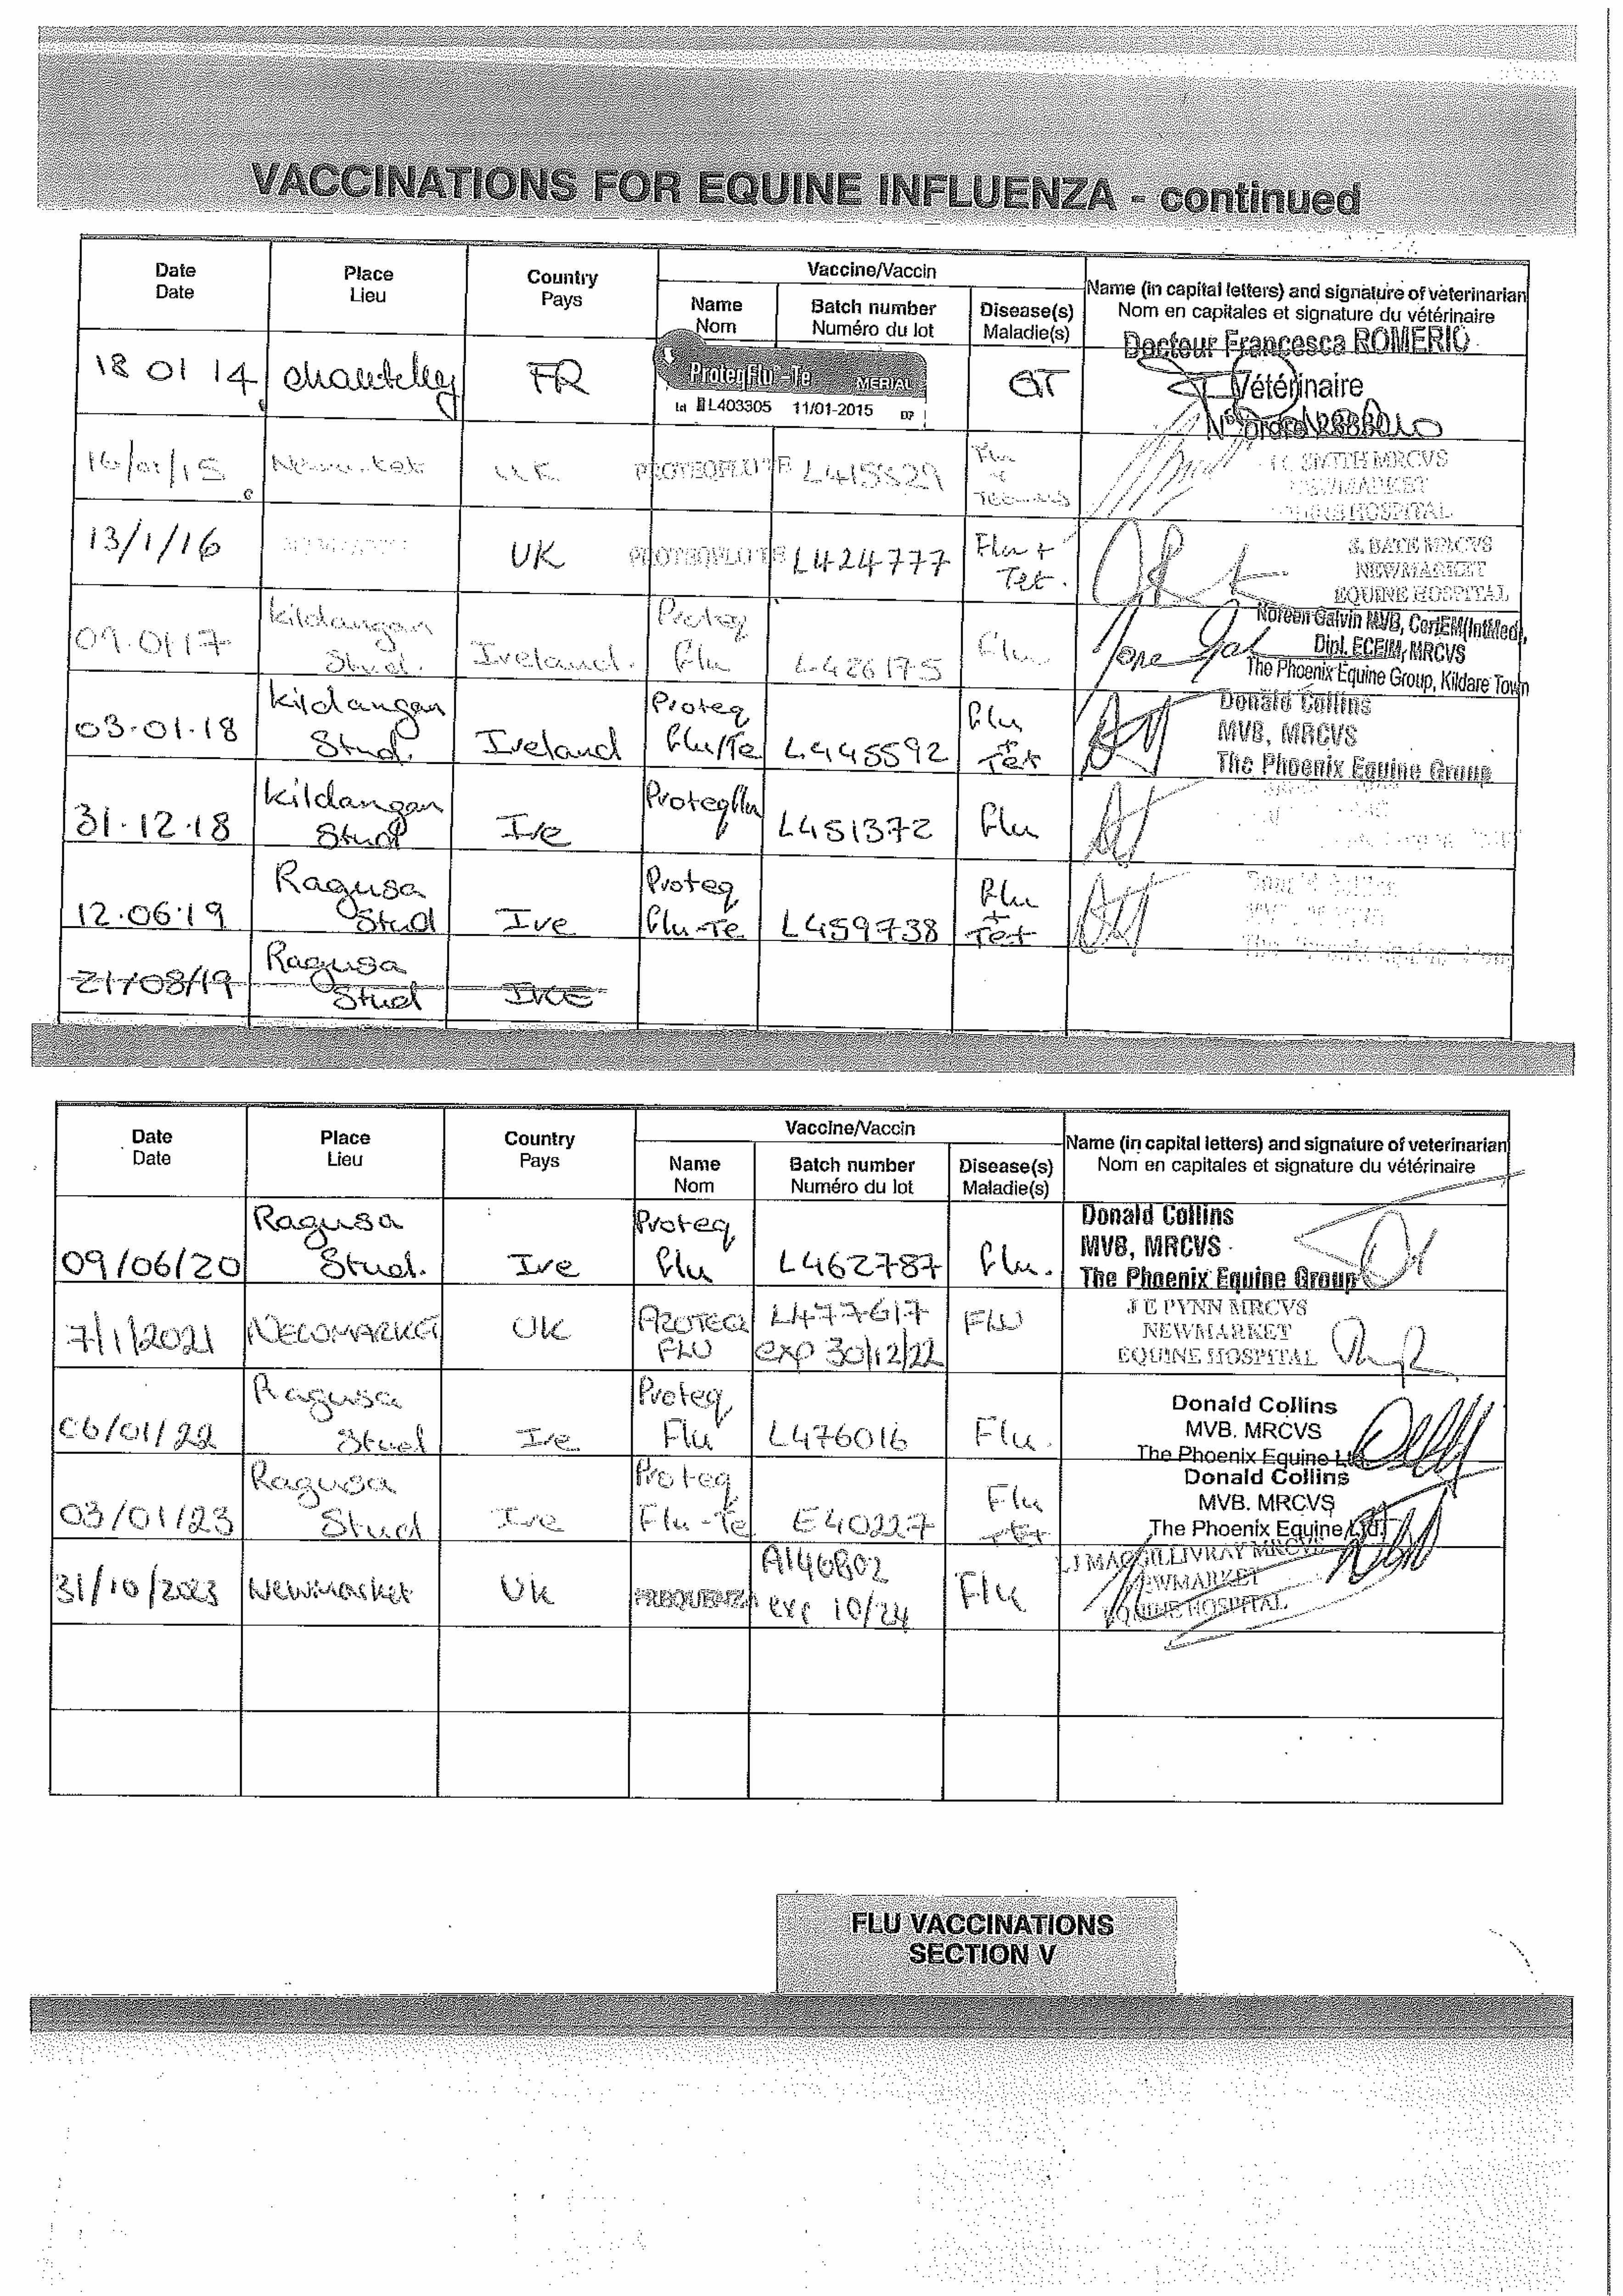 VACCINATIONS FOR EQUINE INFLUENZA - continued
Date
Date
Place
Lieu
Country
Pays
Vaccine/Vaccin
Name
Nom
Batch number
Numéro du lot
Disease(s)
Maladie(s)
Name (in capital letters) and signature of veterinarian
Nom en capitales et signature du vétérinaire
18 01 14 Chantilly FR
ProteqFlu -Te MERIAL
Lot L403305 11/01-2015 07
GT
Docteur Francesca ROMERIO
Vétérinaire
16/01/15 UK PROTEQFLUTE L415529
Flu
+
Tetanus
SMITH MRCVS
NEWMARKET
EQUINE HOSPITAL
13/1/16 NEWMARKET UK PROTEQFLUTE L424777
Flu +
Tet.
S. BATE MRCVS
NEWMARKET
EQUINE HOSPITAL
09.01.17
Kildangan
Stud.
Ireland.
Proteq
Flu
L426175
Flu
Noreen Galvin MVB, CertEM(IntMed),
Dipl. ECEIM, MRCVS
The Phoenix Equine Group, Kildare Town
03.01.18
Kildangan
Stud.
Ireland
Proteq
Flu/Te
L445592
Flu
+
Tet
Donald Collins
MVB, MRCVS
The Phoenix Equine Group
31.12.18
Kildangan
Stud
Ire
Proteqflu
L451372
Flu
12.06.19
Ragusa
Stud
Ire
Proteq
Flu-Te
L459738
Flu
+
Tet
Donald Collins
21/08/19
Ragusa
Stud
IRE
Date
Date
Place
Lieu
Country
Pays
Vaccine/Vaccin
Name
Nom
Batch number
Numéro du lot
Disease(s)
Maladie(s)
Name (in capital letters) and signature of veterinarian
Nom en capitales et signature du vétérinaire
09/06/20
Ragusa
Stud.
Ire
Proteq
Flu
L462787
Flu.
Donald Collins
MVB, MRCVS
The Phoenix Equine Group
7/1/2021 NEWMARKET UK
PROTEQ
FLU
L477617
exp 30/12/22
FLU
J E PYNN MRCVS
NEWMARKET
EQUINE HOSPITAL
06/01/22
Ragusa
Stud
Ire
Proteq
Flu
L476016
Flu.
Donald Collins
MVB. MRCVS
The Phoenix Equine Ltd
03/01/23
Ragusa
Stud
Ire
Proteq
Flu-Te
E40227
Flu
Tet
Donald Collins
MVB. MRCVS
The Phoenix Equine Ltd.
31/10/2023 Newmarket UK
A146B02
exp 10/24
Flu
L J MACGILLIVRAY MRCVS
NEWMARKET
EQUINE HOSPITAL
FLU VACCINATIONS
SECTION V